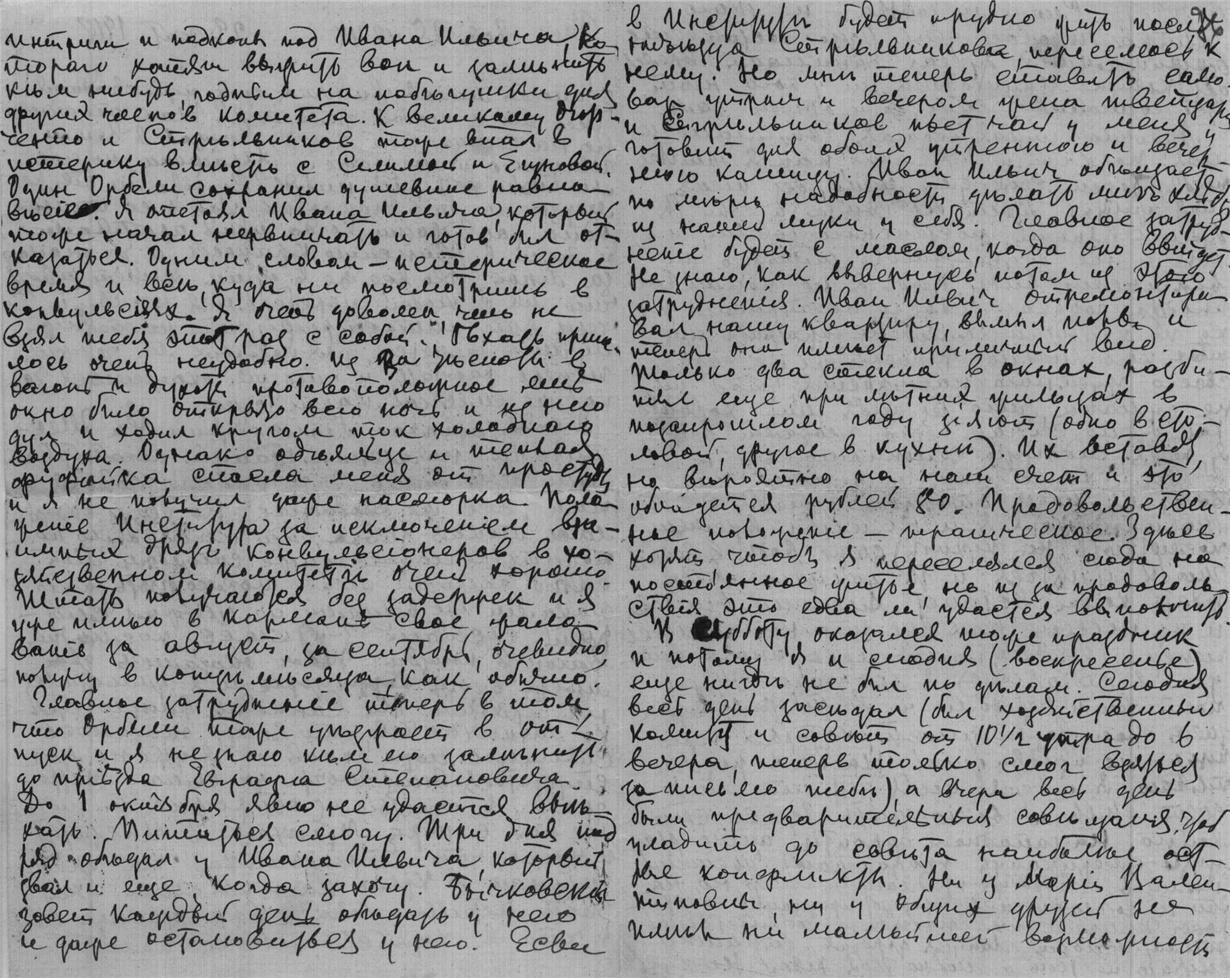 интриги и подкопы под Ивана Ильича, ко-
тораго хотят выжить вон и заменить
кем нибудь, годным на побегушки для
других членов комитета. К великому огор-
чению и Стрельников тоже впал в
истерику вместе с и
Один Орбели сохранил душевное равно-
весие. Я отстоял Ивана Ильича, который
тоже начал нервничать и готов был от-
казаться. Одним словом — истерическое
время и все, куда ни посмотришь в
конвульсиях. Я очень доволен, что не
взял тебя этот раз с собой. Ехать приш-
лось очень неудобно. Из за тесноты в
вагоне и духоты противоположное мне
окно было открыто всю ночь и из него
дул и ходил кругом ток холоднаго
воздуха. Однако одеяльце и теплая
фуфайка спасла меня от простуды
и я не получил даже насморка. Поло-
жение Института за исключением вза-
имных дрязг конвульсионеров в хо-
зяйственном комитете очень хорошо.
Штаты получаются без задержек и я
уже имею в кармане свое жало-
ванье за август, за сентябрь, очевидно,
получу в конце месяца, как обычно.
Главное затруднение теперь в том
что Орбели тоже уезжает в от-
пуск и я не знаю кем его заменить
до приезда Евграфа Степановича
До 1 октября явно не удастся вые-
хать. Питаться смогу. Три дня под
ряд обедал у Ивана Ильича, который
звал и еще когда захочу. Бычковский
зовет каждый день обедать у него
и даже остановиться у него. Если
в Институте будет трудно жить после
Стрельникова, переселюсь к
нему. Но мне теперь ставить само-
вар утром и вечером жена швейцара
и Стрельников пьет чай у меня и
готовит для обоих утреннюю и вечер-
нюю кашицу. Иван Ильич обещает
по мере надобности делать мне хлеб
из нашей муки у себя. Главное затруд-
нение будет с маслом, когда оно выйдет
Не знаю, как вывернусь потом из этого
затруднения. Иван Ильич отремонтиро-
вал нашу квартиру, вымыл полы и
теперь она имеет приличный вид.
Только два стекла в окнах, разби-
тые еще при летних в
позапрошлом году зияют (одно в сто-
ловой, другое в кухне). Их вставят,
но вероятно на наш счет и это
обойдется рублей 80. Продовольствен-
ное положение — трагическое. Здесь
хотят чтобы я переселялся сюда на
постоянное житье, но из за продоволь-
ствия это едва ли удастся выполнить
В субботу оказался тоже праздник
и потому я и сегодня (воскресенье)
еще нигде не был по делам. Сегодня
весь день заседал (был хозяйственный
комитет и совет от 10 1/2 утра до 6
вечера, теперь только смог взяться
за письмо тебе), а вчера весь день
были предварительныя совещания, чтоб
уладить до совета наиболее ост-
рые конфликты. Ни у Марии Вален-
тиновны, ни у общих друзей не
имею ни малейшей возможности